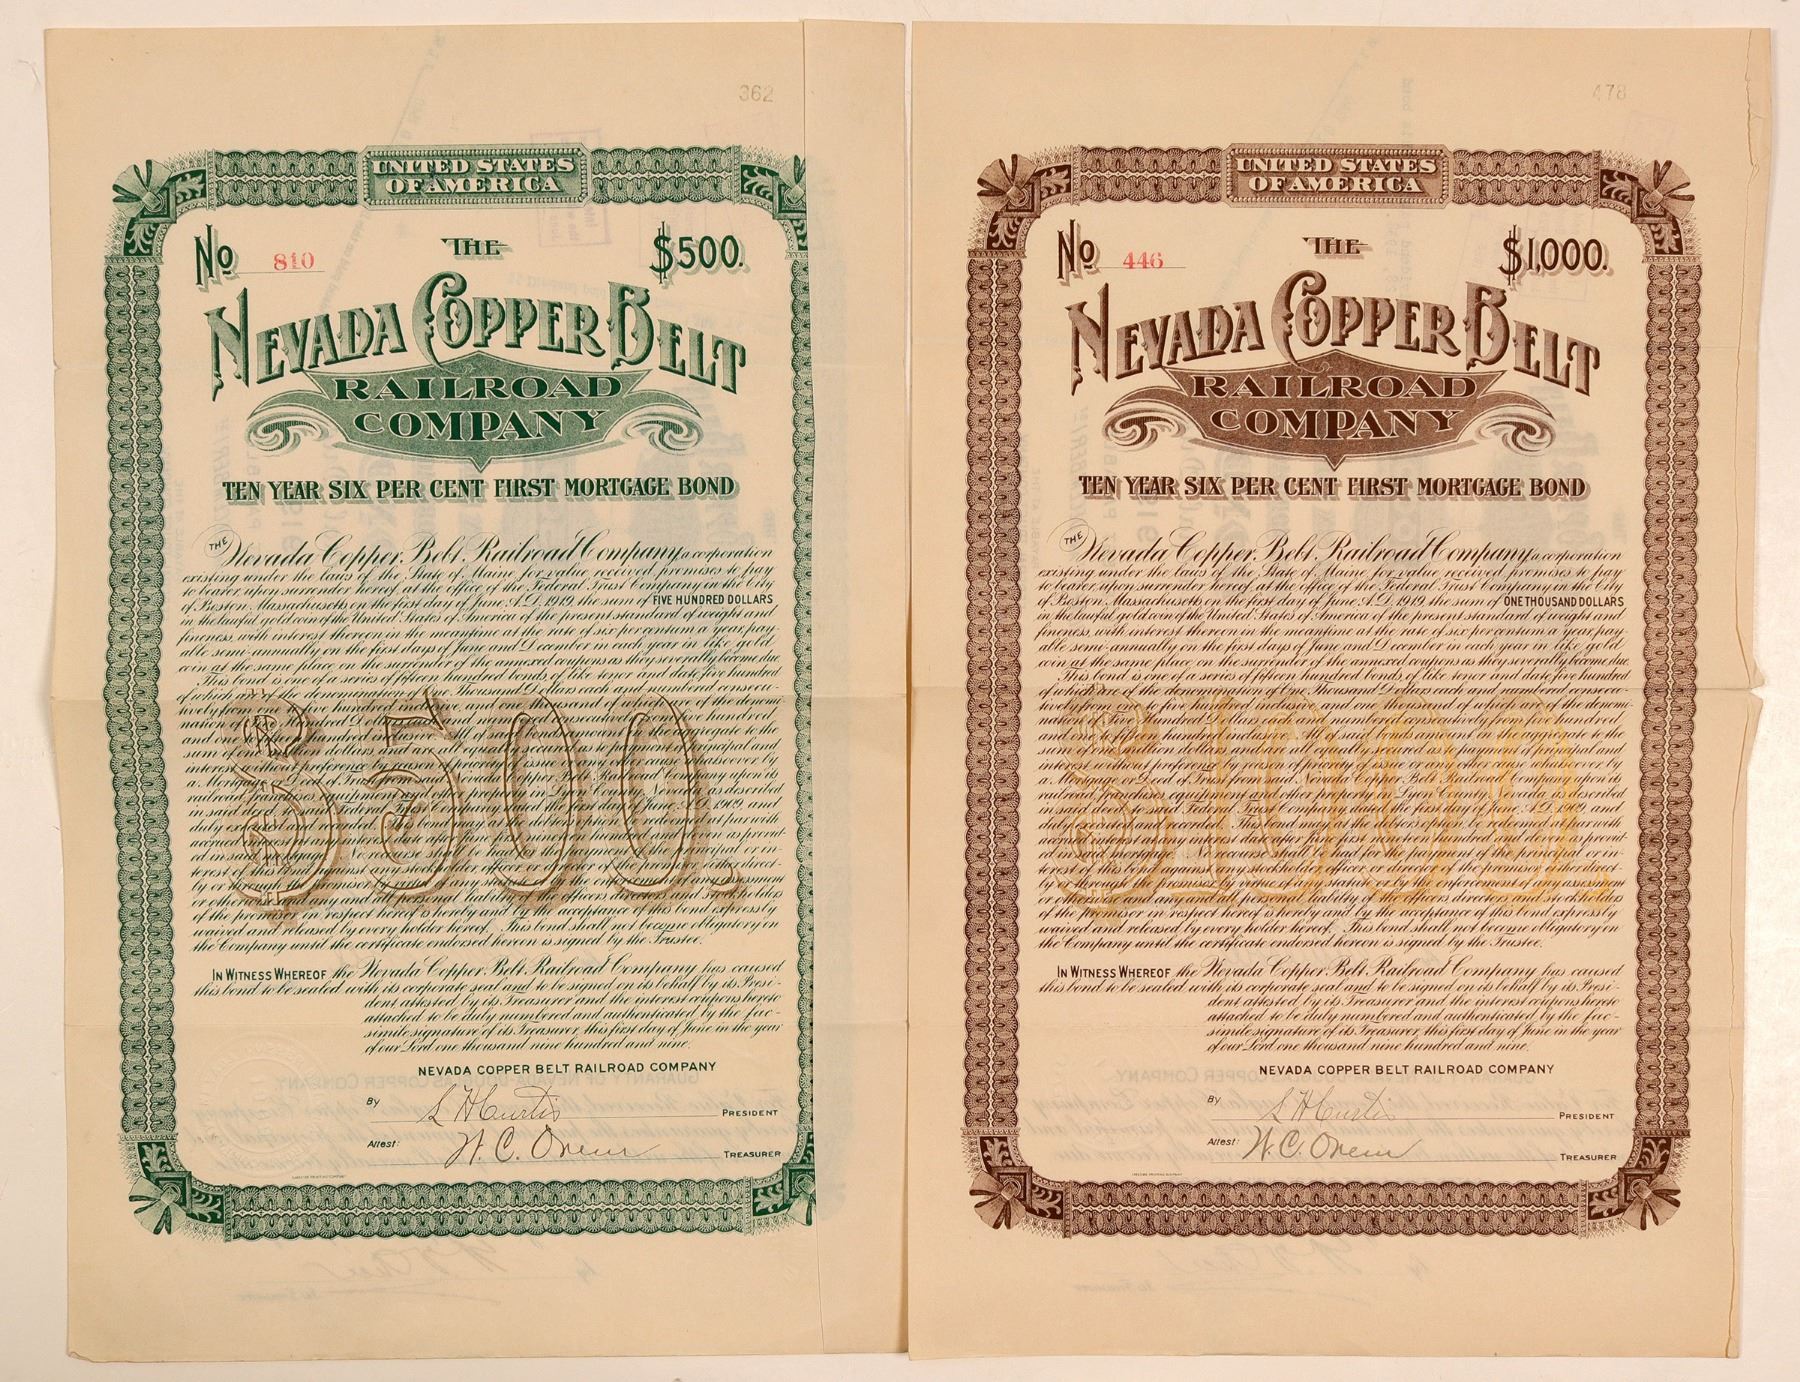 362
UNITED STATES
OF AMERICA
No 810
THE
$500.
NEVADA COPPER BELT
RAILROAD
COMPANY
TEN YEAR SIX PER CENT FIRST MORTGAGE BOND
THE Nevada Copper Belt Railroad Company a corporation
existing under the laws of the State of Maine for value received promises to pay
to bearer upon surrender hereof at the office of the Federal Trust Company in the City
of Boston, Massachusetts on the first day of June A.D. 1919, the sum of FIVE HUNDRED DOLLARS
in the lawful gold coin of the United States of America of the present standard of weight and
fineness, with interest thereon in the meantime at the rate of six per centum a year, pay-
able semi-annually on the first days of June and December in each year in like gold
coin at the same place on the surrender of the annexed coupons as they severally become due.
This bond is one of a series of fifteen hundred bonds of like tenor and date, five hundred
of which are of the denomination of One Thousand Dollars each and numbered consecu-
tively from one to five hundred inclusive, and one thousand of which are of the denomi-
nation of Five Hundred Dollars each and numbered consecutively from five hundred
and one to fifteen hundred inclusive. All of said bonds amount in the aggregate to the
sum of one million dollars and are all equally secured as to payment of principal and
interest without preference by reason of priority of issue or any other cause whatsoever by
a Mortgage or Deed of Trust from said Nevada Copper Belt Railroad Company upon its
railroad, franchises, equipment and other property in Lyon County, Nevada, as described
in said deed, to said Federal Trust Company, dated the first day of June A.D. 1909, and
duly executed and recorded. This bond may at the debtor's option be redeemed at par with
accrued interest at any interest date after June first, nineteen hundred and eleven as provid-
ed in said mortgage. No recourse shall be had for the payment of the principal or in-
terest of this bond against any stockholder officer or director of the promisor either direct-
ly or through the promisor by virtue of any statute or by the enforcement of any assessment
or otherwise and any and all personal liability of the officers, directors and stockholders
of the promisor in respect hereof is hereby and by the acceptance of this bond expressly
waived and released by every holder hereof. This bond shall not become obligatory on
the Company until the certificate endorsed hereon is signed by the Trustee.
IN WITNESS WHEREOF the Nevada Copper Belt Railroad Company has caused
this bond to be sealed with its corporate seal and to be signed on its behalf by its Presi-
dent attested by its Treasurer and the interest coupons hereto
attached to be duly numbered and authenticated by the fac-
simile signature of its Treasurer, this first day of June in the year
of our Lord one thousand nine hundred and nine.
$500
NEVADA COPPER BELT RAILROAD COMPANY
By S H Curtis PRESIDENT
Attest: W. C. Orem TREASURER
478
UNITED STATES
OF AMERICA
No 446
THE
$1,000.
NEVADA COPPER BELT
RAILROAD
COMPANY
TEN YEAR SIX PER CENT FIRST MORTGAGE BOND
THE Nevada Copper Belt Railroad Company a corporation
existing under the laws of the State of Maine for value received promises to pay
to bearer upon surrender hereof at the office of the Federal Trust Company in the City
of Boston, Massachusetts on the first day of June A.D. 1919, the sum of ONE THOUSAND DOLLARS
in the lawful gold coin of the United States of America of the present standard of weight and
fineness, with interest thereon in the meantime at the rate of six per centum a year, pay-
able semi-annually on the first days of June and December in each year in like gold
coin at the same place on the surrender of the annexed coupons as they severally become due.
This bond is one of a series of fifteen hundred bonds of like tenor and date, five hundred
of which are of the denomination of One Thousand Dollars each and numbered consecu-
tively from one to five hundred inclusive and one thousand of which are of the denomi-
nation of Five Hundred Dollars each and numbered consecutively from five hundred
and one to fifteen hundred inclusive. All of said bonds amount in the aggregate to the
sum of one million dollars, and are all equally secured as to payment of principal and
interest without preference by reason of priority of issue or any other cause whatsoever by
a Mortgage or Deed of Trust from said Nevada Copper Belt Railroad Company upon its
railroad, franchises, equipment and other property in Lyon County, Nevada, as described
in said deed, to said Federal Trust Company, dated the first day of June A.D. 1909, and
duly executed and recorded. This bond may at the debtor's option be redeemed at par with
accrued interest at any interest date after June first, nineteen hundred and eleven as provid-
ed in said mortgage. No recourse shall be had for the payment of the principal or in-
terest of this bond against any stockholder officer or director of the promisor either direct-
ly or through the promisor by virtue of any statute or by the enforcement of any assessment
or otherwise and any and all personal liability of the officers, directors and stockholders
of the promisor in respect hereof is hereby and by the acceptance of this bond expressly
waived and released by every holder hereof. This bond shall not become obligatory on
the Company until the certificate endorsed hereon is signed by the Trustee.
IN WITNESS WHEREOF the Nevada Copper Belt Railroad Company has caused
this bond to be sealed with its corporate seal and to be signed on its behalf by its Presi-
dent attested by its Treasurer and the interest coupons hereto
attached to be duly numbered and authenticated by the fac-
simile signature of its Treasurer, this first day of June in the year
of our Lord one thousand nine hundred and nine.
$1000
NEVADA COPPER BELT RAILROAD COMPANY
By S H Curtis PRESIDENT
Attest: W. C. Orem TREASURER